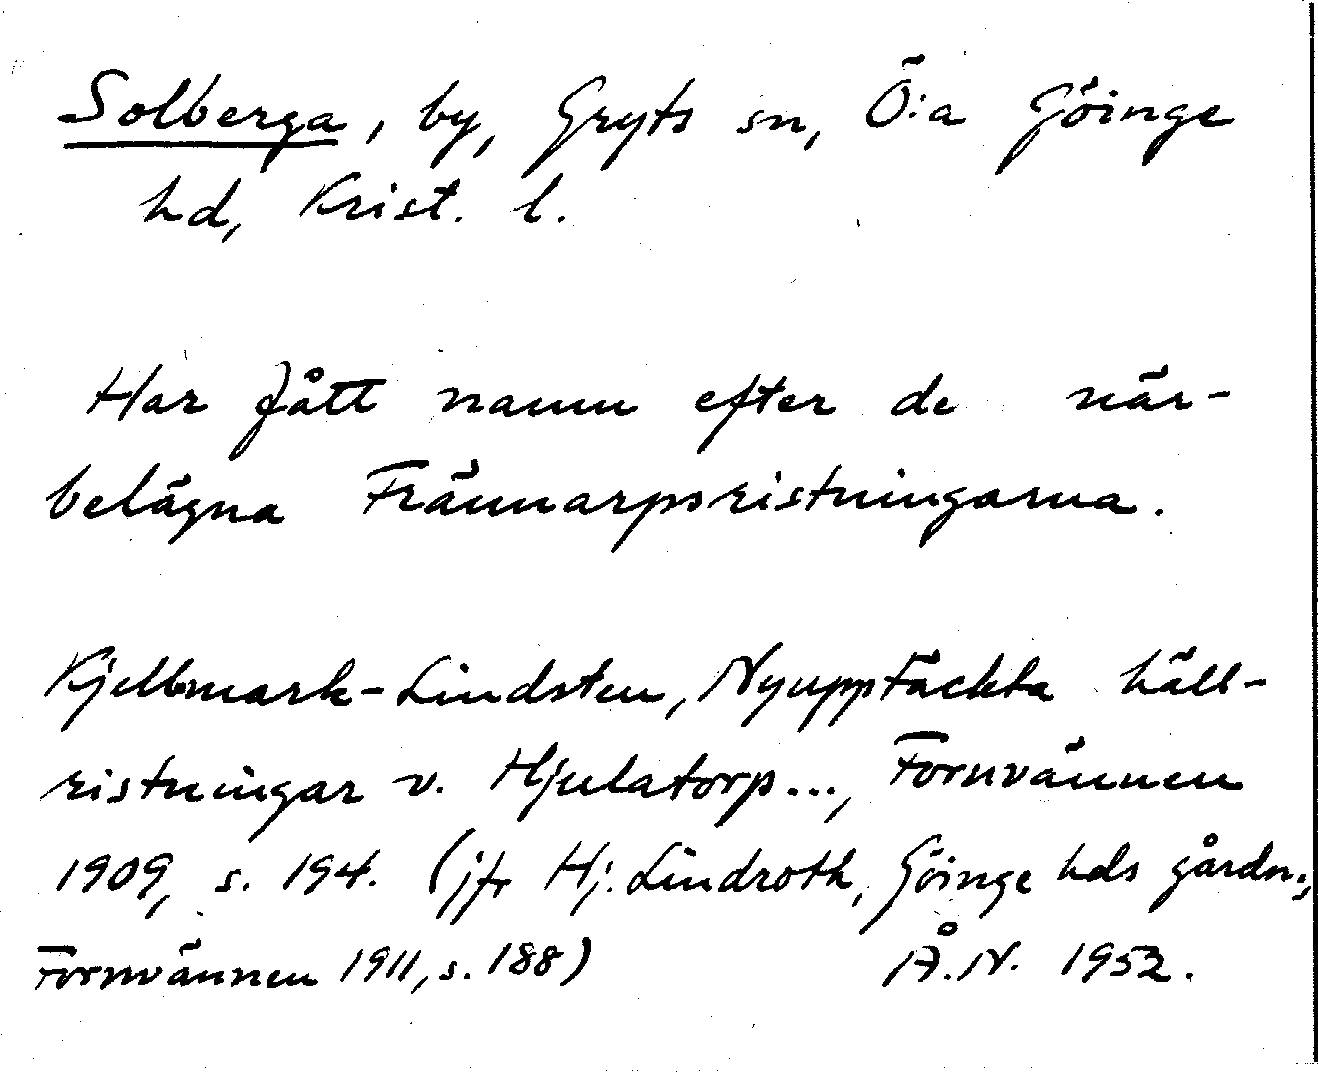 Solberga, by, Gryts sn, Ö:a Göinge
hd, Krist. l.
Har fått namn efter de när-
belägna Frännarpsristningarna.
Kjellmark-Lindsten, Nyupptäckta häll-
ristningar v. Hjulatorp..., Fornvännen
1909, s. 194. (jfr Hj. Lindroth, Göinge hds gårdn.,
Fornvännen 1911, s. 188) Å.N. 1952.